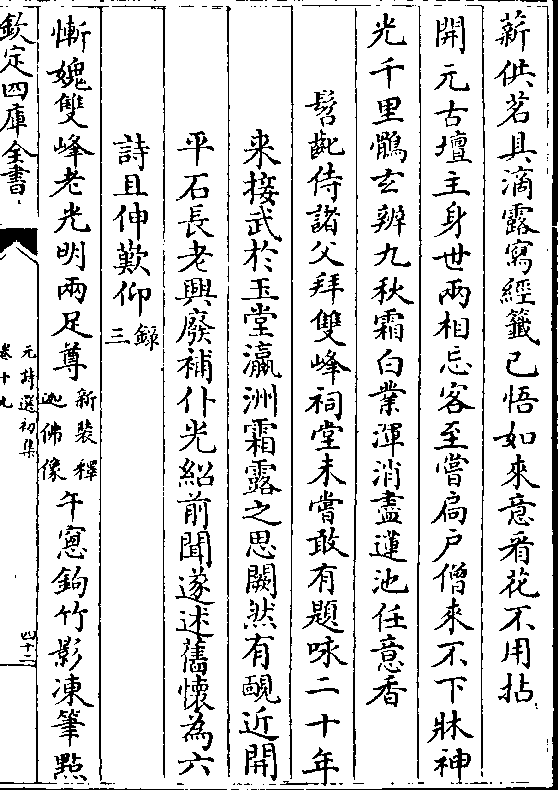 薪供茗具滴露寫經籤已悟如來意看花不用拈
開元古壇主身世兩相忘客至嘗扃戶僧來不下牀神
光千里鶻玄辨九秋霜白業渾消盡蓮池任意香
髫齔侍諸父拜雙峰祠堂未嘗敢有題咏二十年
来接武於玉堂瀛洲霜露之思闕然有靦近開
平石長老興廢補仆光紹前聞遂述舊懷為六
詩且伸歎仰錄三
慚媿雙峰老光明兩足尊新裝釋迦佛像午窻鉤竹影凍筆點
欽定四庫全書
元詩選初集
卷十九
四十二